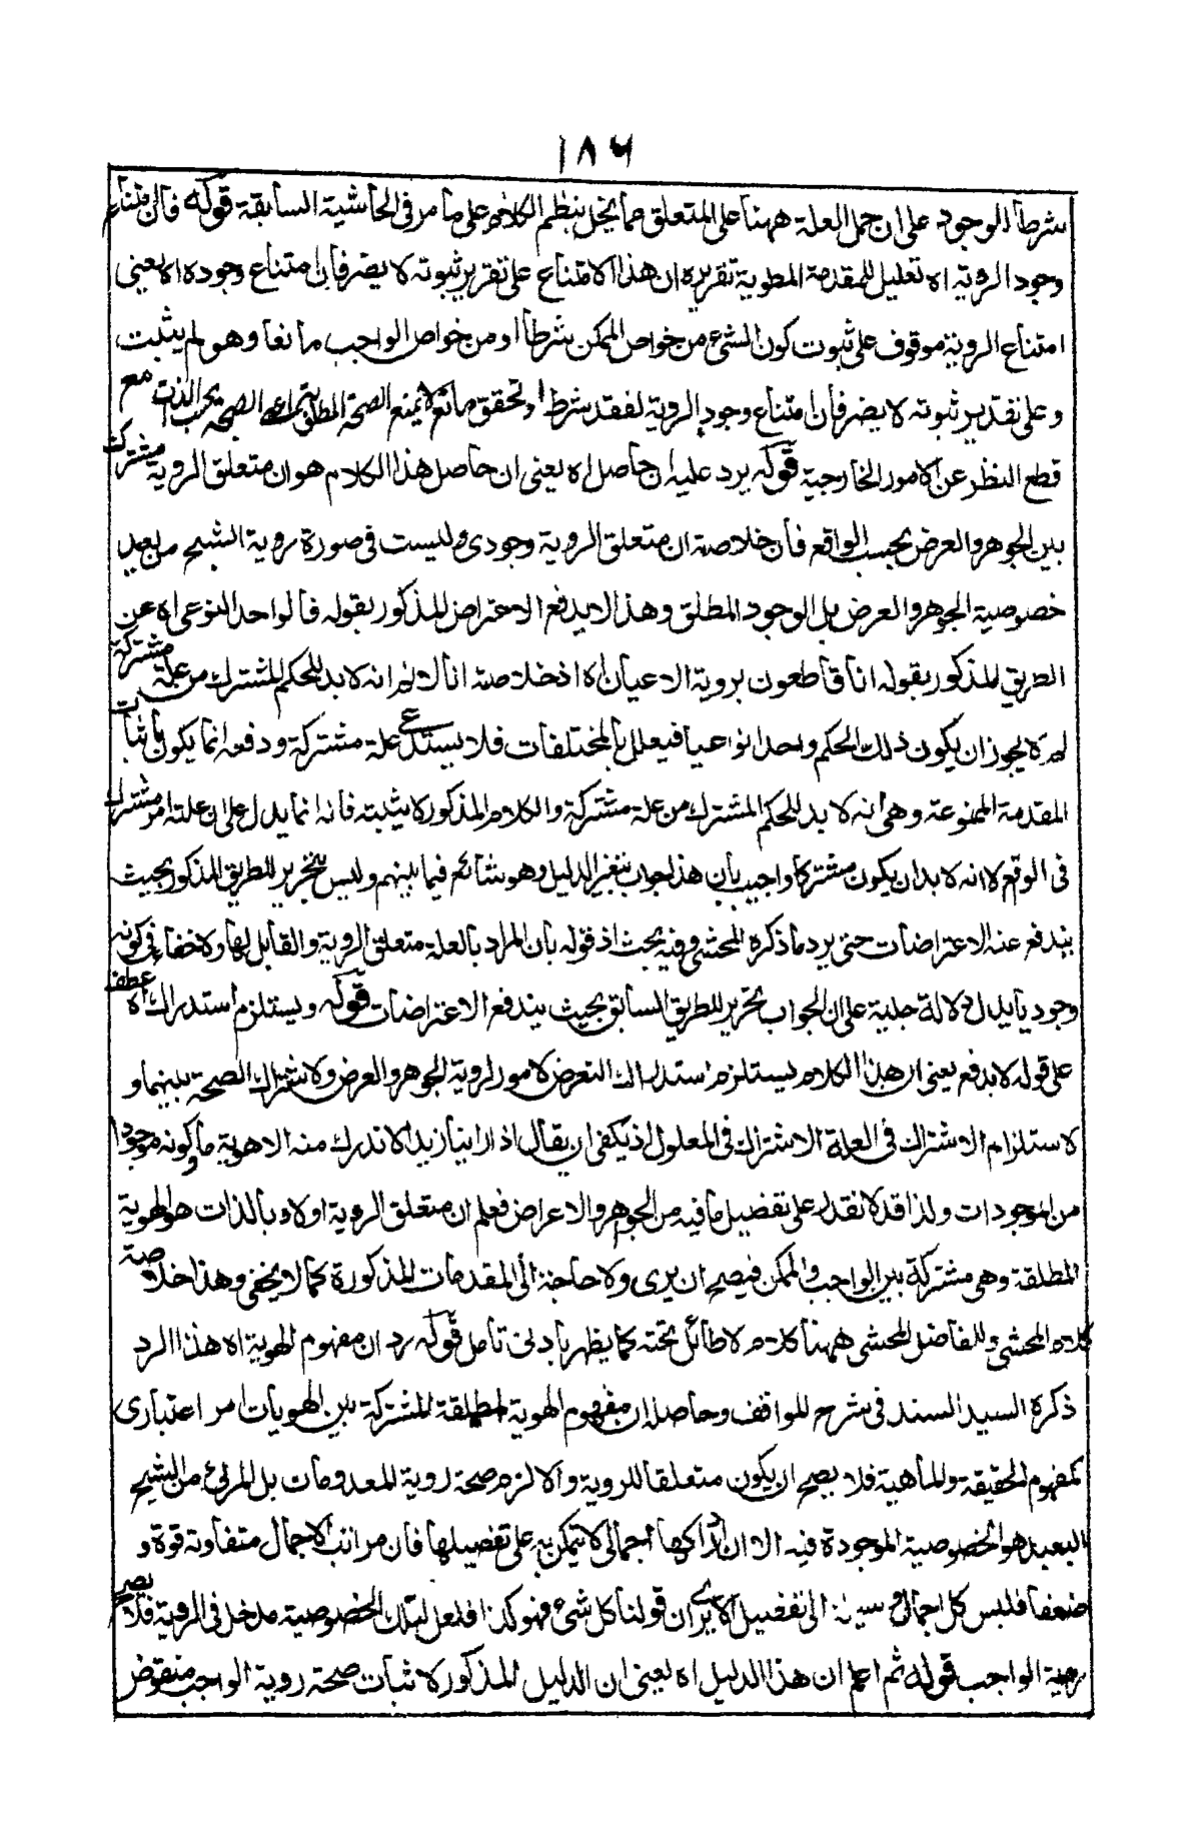 ١٨٦
شرطا لوجود على ان حمل العلة ههنا على المتعلق مما يخل بنظم الكلام على ما مر فى الحاشية السابقة قوله فان امتناع
وجود الروية اه تعليل للمقدمة المطوية تقريره ان هذا الامتناع على تقرير ثبوته لا يضر فان امتناع وجوده الا يعنى
امتناع الروية موقوف على ثبوت كون الشئ من خواص الممكن شرطا او من خواص الواجب مانعا وهو لم يثبت
وعلى تقدير ثبوته لا يضر فان امتناع وجود الروية لفقد شرط او تحقق مانع لا يمنع الصحة المطلوبة اعنى الصحة بحسب الذات مع
قطع النظر عن الامور الخارجية قوله يرد عليه ان حاصل اه يعنى ان حاصل هذا الكلام هو ان متعلق الروية مشترك
بين الجوهر والعرض بحسب الواقع فان خلاصته ان متعلق الروية وجودى وليست فى صورة روية الشبح من بعيد
خصوصية الجوهر والعرض بل الوجود المطلق وهذا لا يدفع الاعتراض المذكور بقوله فالواحد النوعى اه عن
الطريق المذكور بقوله انا قاطعون بروية الاعيان اه اذ خلاصته انا لا نم انه لا بد للحكم المشترك من علة مشتركة
لم لا يجوز ان يكون ذلك الحكم واحدا نوعيا فيعلل بالمختلفات فلا يستدعى علة مشتركة ودفعه انما يكون باثبات
المقدمة الممنوعة وهى انه لا بد للحكم المشترك من علة مشتركة والكلام المذكور لا يثبته فانه انما يدل على ان علته امر مشترك
فى الواقع لا انه لا بد ان يكون مشتركا واجيب بان هذا جواب بتغير الدليل وهو شائع فيما بينهم وليس تحرير للطريق المذكور بحيث
يندفع عنه الاعتراضات حتى يرد ما ذكره المحشى وفيه بحث اذ قوله بان المراد بالعلة متعلق الروية والقابل لها ولا خفاء فى كونه
وجوديا يدل دلالة جلية على ان الجواب تحرير للطريق السابق بحيث يندفع الاعتراضات قوله ويستلزم استدراك اه عطف
على قوله لا يدفع يعنى ان هذا الكلام يستلزم استدراك التعرض لامور لروية الجوهر والعرض ولاشتراك الصحة بينهما و
لاستلزام الاشتراك فى العلة الاشتراك فى المعلول اذ يكفى ان يقال اذا راينا زيدا لا ندرك منه الا هوية ما وكونه موجودا
من الموجودات ولذا قد لا نقدر على تفصيل ما فيه من الجوهر والاعراض فعلم ان متعلق الروية اولا وبالذات هو الهوية
المطلقة وهى مشتركة بين الواجب والممكن فيصح ان يرى ولا حاجة الى المقدمات المذكورة كما لا يخفى وهذا خلاصة
كلام المحشى وللفاضل المحشى ههنا كلام لا طائل تحته كما يظهر بادنى تامل قوله رد ان مفهوم الهوية اه هذا الرد
ذكره السيد السند فى شرح المواقف وحاصله ان مفهوم الهوية المطلقة المشتركة بين الهويات امر اعتبارى
كمفهوم الحقيقة والماهية فلا يصح ان يكون متعلقا للروية والا لزم صحة روية المعدومات بل المرئ من الشبح
البعيد هو الخصوصية الموجودة فيه الا ان ادراكها اجمالى لا يتمكن به على تفصيلها فان مراتب الاجمال متفاوتة قوة و
ضعفا فليس كل اجمال وسيلة الى تفصيل الا يرى ان قولنا كل شئ فهو كذا فلعل لتلك الخصوصية مدخل فى الروية فلا يصح
روية الواجب قوله ثم اعلم ان هذا الدليل اه يعنى ان الدليل المذكور لاثبات صحة روية الواجب منقوض